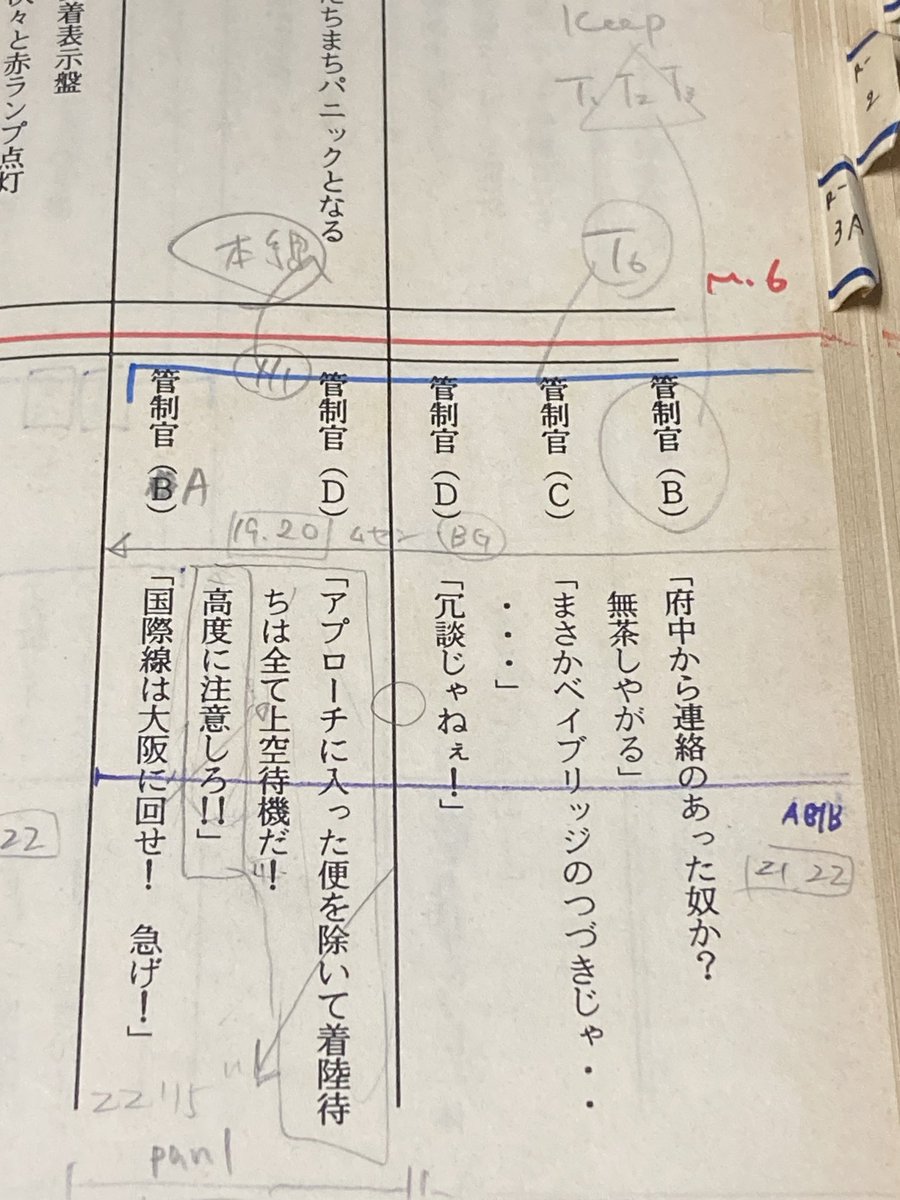 Keep
T₁ T₂ T₃
T6
m.6
R-2
R-3A
管制官(B)
「府中から連絡のあった奴か?
無茶しやがる」
管制官(C)
「まさかベイブリッジのつづきじゃ・・
・・・」
管制官(D)
「冗談じゃねぇ!」
たちまちパニックとなる
本線
管制官(D)
「アプローチに入った便を除いて着陸待
ちは全て上空待機だ!
高度に注意しろ!!」
管制官(B)
A
「国際線は大阪に回せ! 急げ!」
着表示盤
々と赤ランプ点灯
19.20
ムセン
BG
21 22
22
22'15
pan1